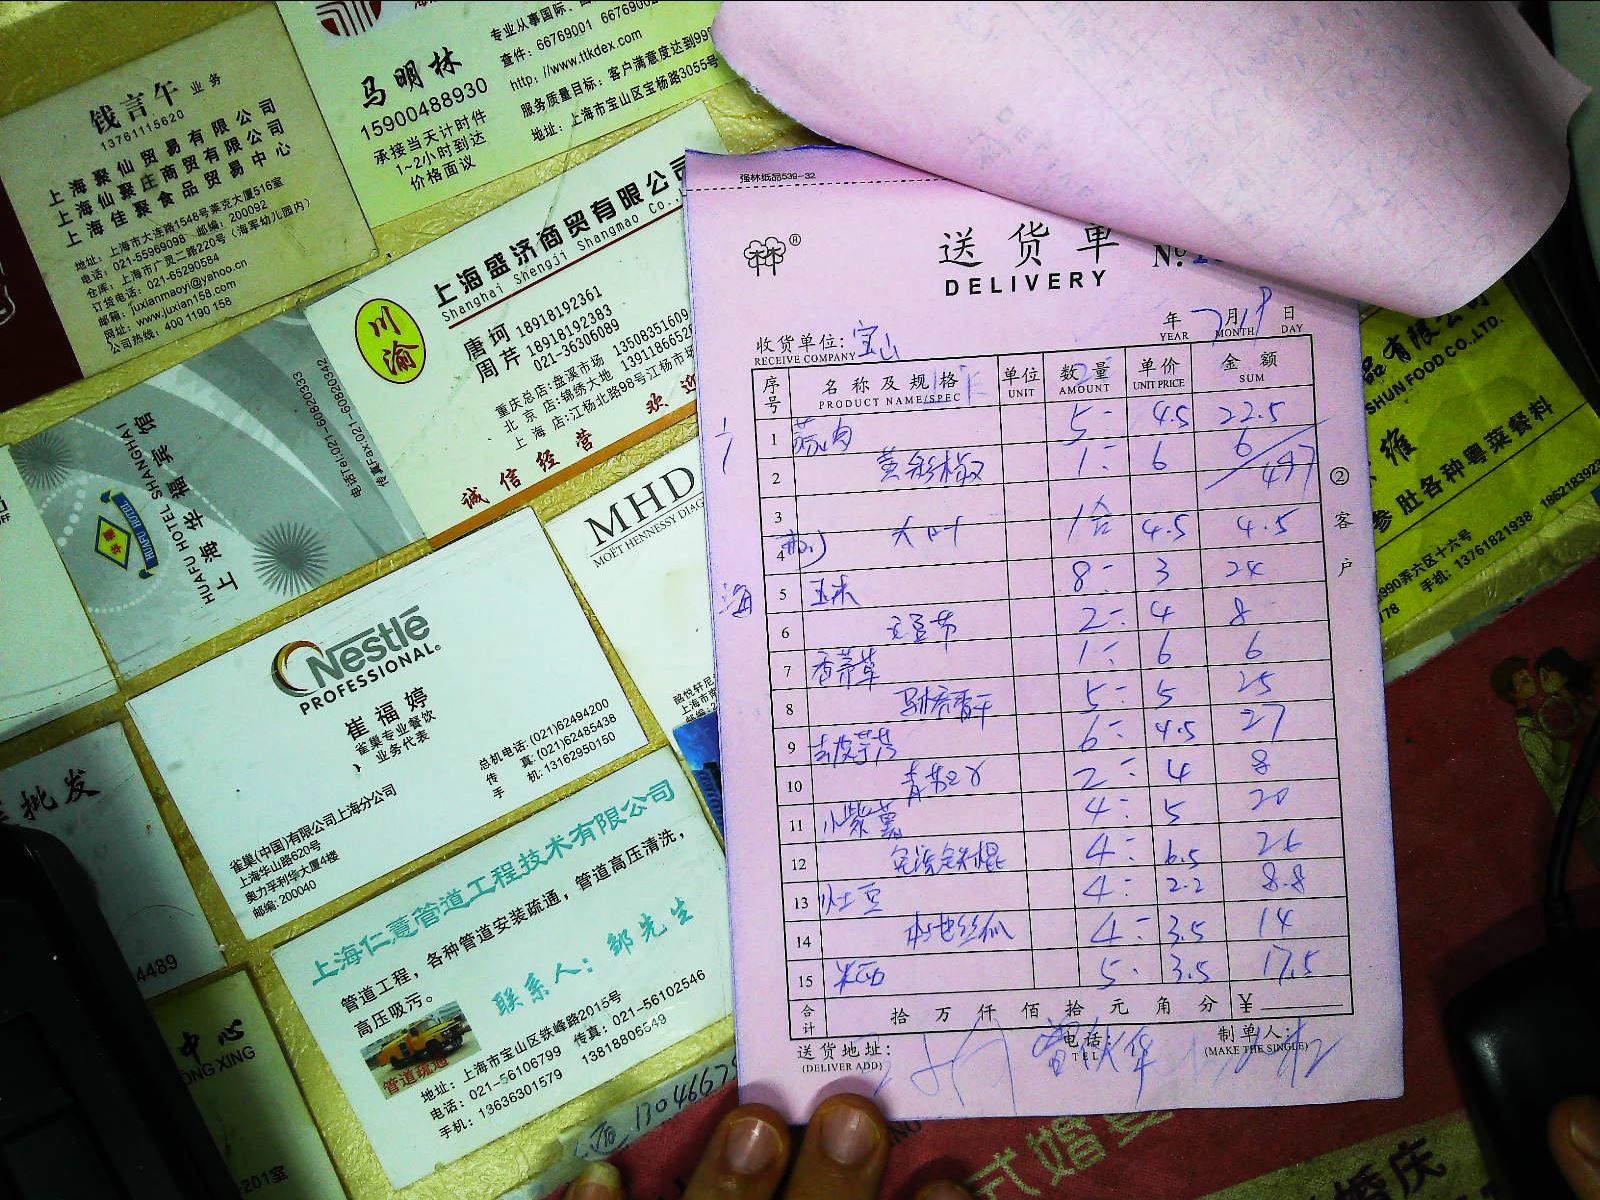 钱言午 业务
13761115620
上海聚仙贸易有限公司
上海仙聚庄商贸有限公司
上海佳聚食品贸易中心
地址：上海市大连路1548号莱克大厦516室
电话：021-55969098 邮编：200092
仓库：上海市广灵二路220号（海军幼儿园内）
订货电话：021-65290584
邮箱：juxianmaoyi@yahoo.cn
网址：www.juxian158.com
公司热线：400 1190 158
专业从事国际、
查件：66769001
http://www.ttkdex.com
服务质量目标：客户满意度达到99
地址：上海市宝山区宝杨路3055号
马明林
15900488930
承接当天计时件
1~2小时到达
价格面议
上海盛济商贸有限公司
Shanghai Shengji Shangmao Co.,
川渝
唐珂 18918192361
周芹 18918192383
021-36306089
重庆总店：盘溪市场 13508351609
北京店：锦绣大地
上海店：江杨北路98号江杨市场
诚信经营 欢迎
电话Tel:021-60820333
传真Fax:021-60820342
上海华福宾馆
HUAFU HOTEL SHANGHAI
HUAFU HOTEL
MHD
MOËT HENNESSY DIAG
Nestlé
PROFESSIONAL
崔福婷
雀巢专业餐饮
业务代表
总机电话：(021)62494200
传真：(021)62485438
手机：13162950150
雀巢(中国)有限公司上海分公司
上海华山路620号
奥力孚利华大厦4楼
邮编：200040
批发
4489
中心
ONG XING
201室
上海仁慧管道工程技术有限公司
管道工程，各种管道安装疏通，管道高压清洗，
高压吸污。
联系人：邹先生
管道疏通
地址：上海市宝山区铁峰路2015号
电话：021-56106799 传真：021-56102546
手机：13636301579 13818806549
强林纸品539-32
送货单
DELIVERY
No.
年 7月19日
YEAR MONTH DAY
收货单位：宝山
RECEIVE COMPANY
序号 名称及规格 单位 数量 单价 金额
PRODUCT NAME/SPEC UNIT AMOUNT UNIT PRICE SUM
1 5 4.5 22.5
2 黄彩椒 1 6 6
497
3
4 大叶 1合 4.5 4.5
5 玉米 8 3 24
6 2 4 8
7 香茅草 1 6 6
8 5 5 25
9 6 4.5 27
10 2 4 8
11 小紫薯 4 5 20
12 4 6.5 26
13 4 2.2 8.8
14 本地丝瓜 4 3.5 14
15 5 3.5 17.5
合计 拾万仟佰拾元角分 ¥
送货地址：
(DELIVER ADD)
电话：
TEL
制单人：
(MAKE THE SINGLE)
② 客户
海
品有限公司
SHUN FOOD CO.,LTD.
维
参肚各种粤菜餐料
990弄六区十六号
手机：13761821938